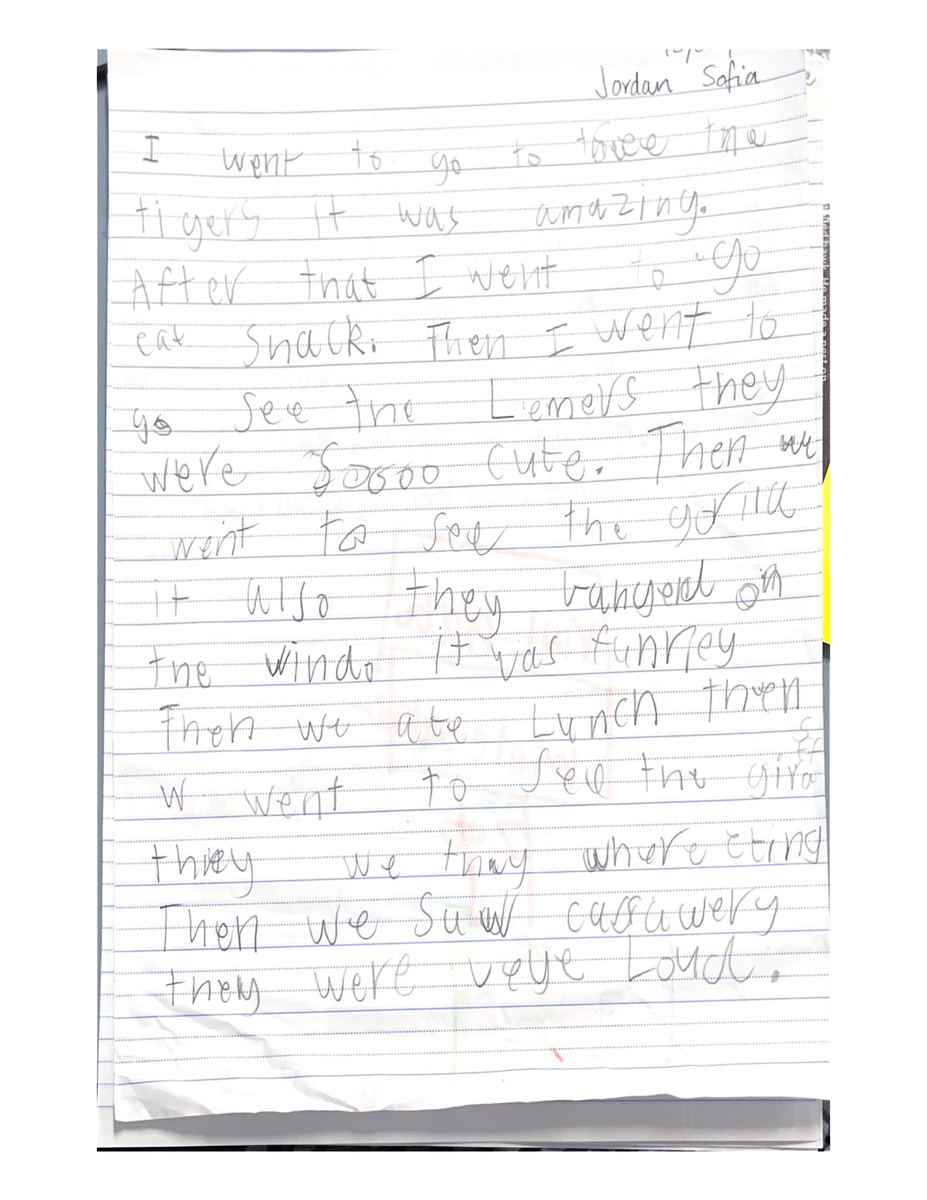 Jordan Sofia
I went to go to the
tigers it was amazing.
After that I went to go
eat snack. Then I went to
go see tne Lemers they
were Soooo cute. Then we
went to see the gorilla
it also they bangerd on
tne windo it was funney
Then we ate Lunch then
w went to see tne giraff
they we thay where eting
Then we saw cassawery
they were veye Loud.